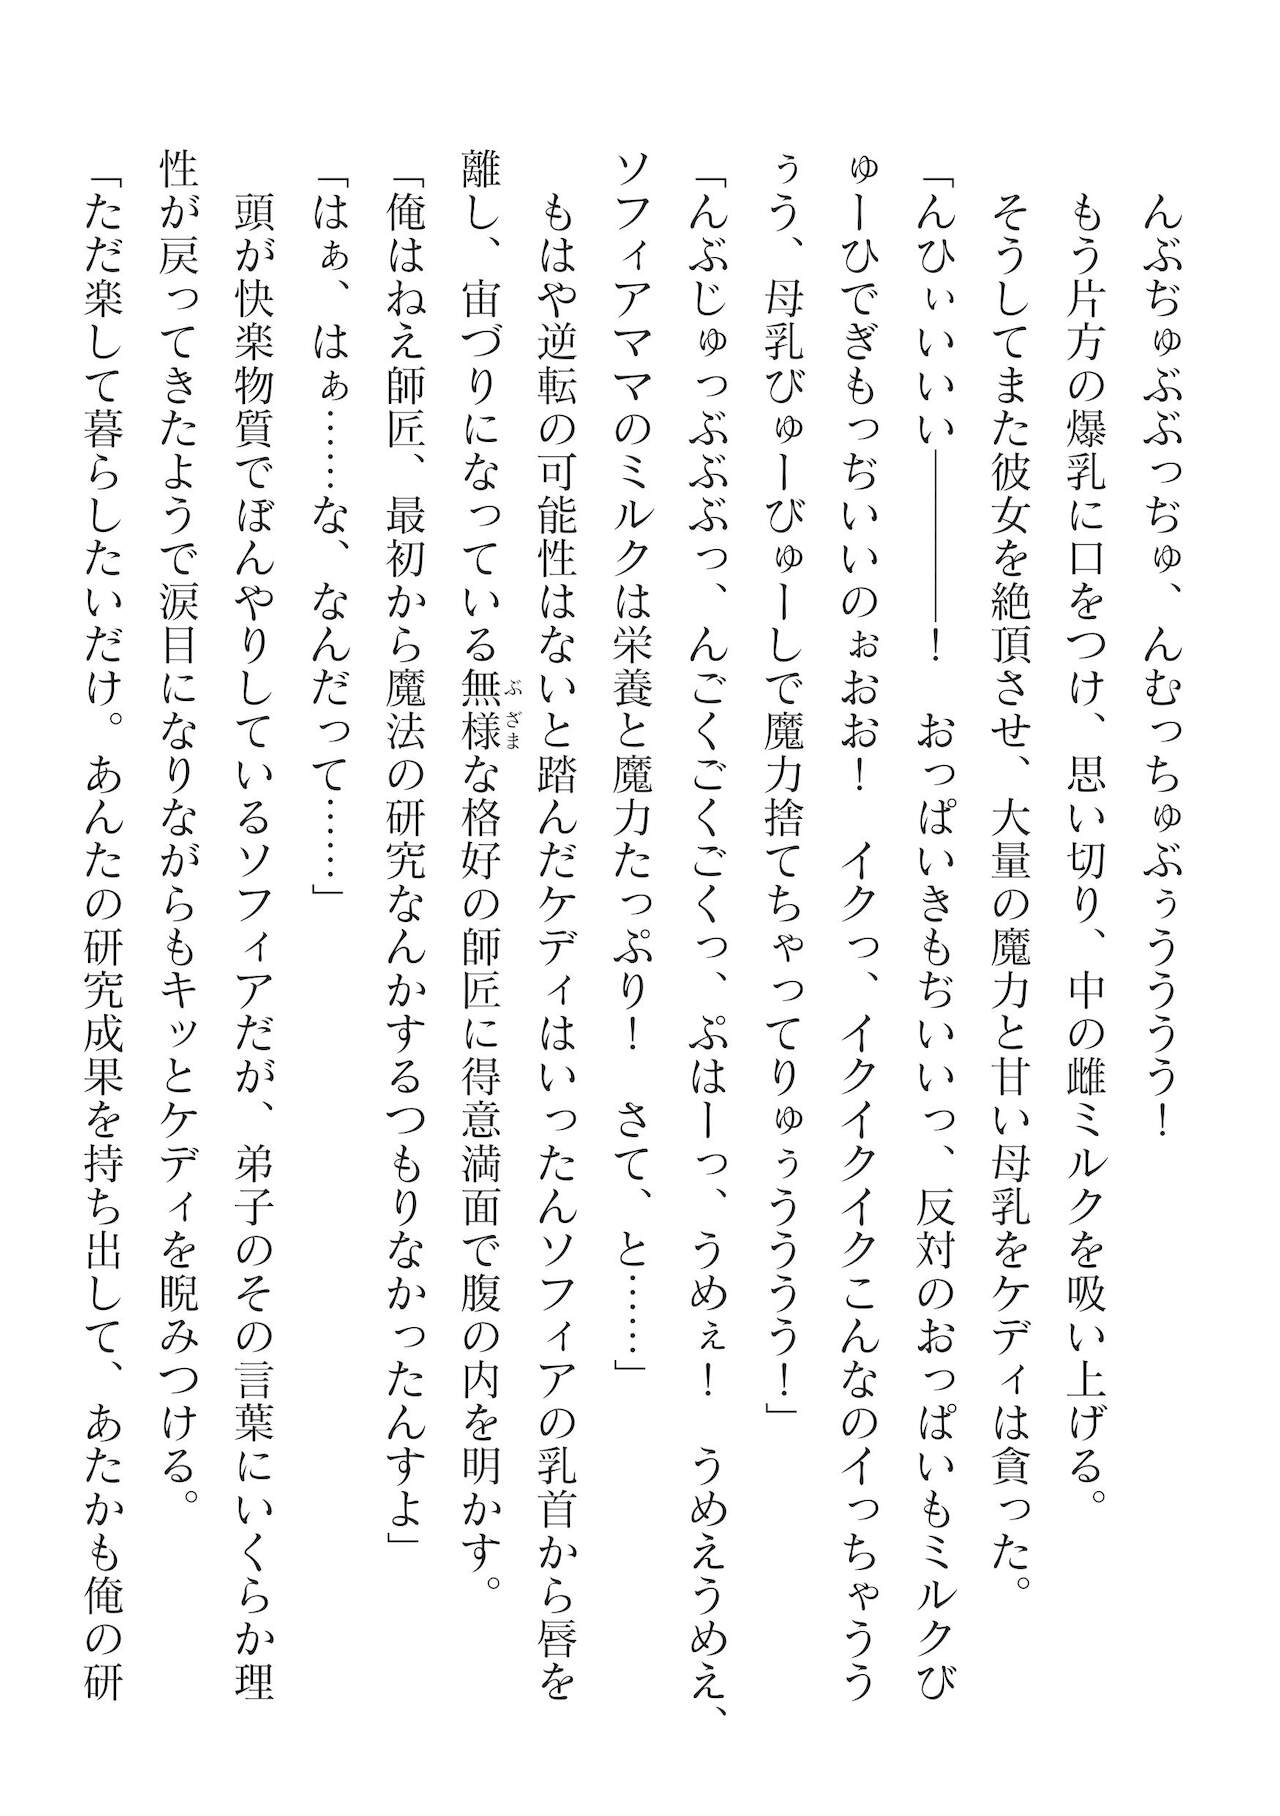 んぶぢゅぶぶっぢゅ、んむっちゅぶぅうううう！
もう片方の爆乳に口をつけ、思い切り、中の雌ミルクを吸い上げる。
そうしてまた彼女を絶頂させ、大量の魔力と甘い母乳をケディは貪った。
「んひぃいいい――――！　おっぱいきもぢいいっ、反対のおっぱいもミルクび
ゅーひでぎもっぢいいのぉおお！　イクっ、イクイクイクこんなのイっちゃうう
ぅう、母乳びゅーびゅーしで魔力捨てちゃってりゅぅうううう！」
「んぶじゅっぶぶぶっ、んごくごくごくっ、ぷはーっ、うめぇ！　うめえうめえ、
ソフィアママのミルクは栄養と魔力たっぷり！　さて、と……」
もはや逆転の可能性はないと踏んだケディはいったんソフィアの乳首から唇を
離し、宙づりになっている無様な格好の師匠に得意満面で腹の内を明かす。
「俺はねえ師匠、最初から魔法の研究なんかするつもりなかったんすよ」
「はぁ、はぁ……な、なんだって……」
頭が快楽物質でぼんやりしているソフィアだが、弟子のその言葉にいくらか理
性が戻ってきたようで涙目になりながらもキッとケディを睨みつける。
「ただ楽して暮らしたいだけ。あんたの研究成果を持ち出して、あたかも俺の研